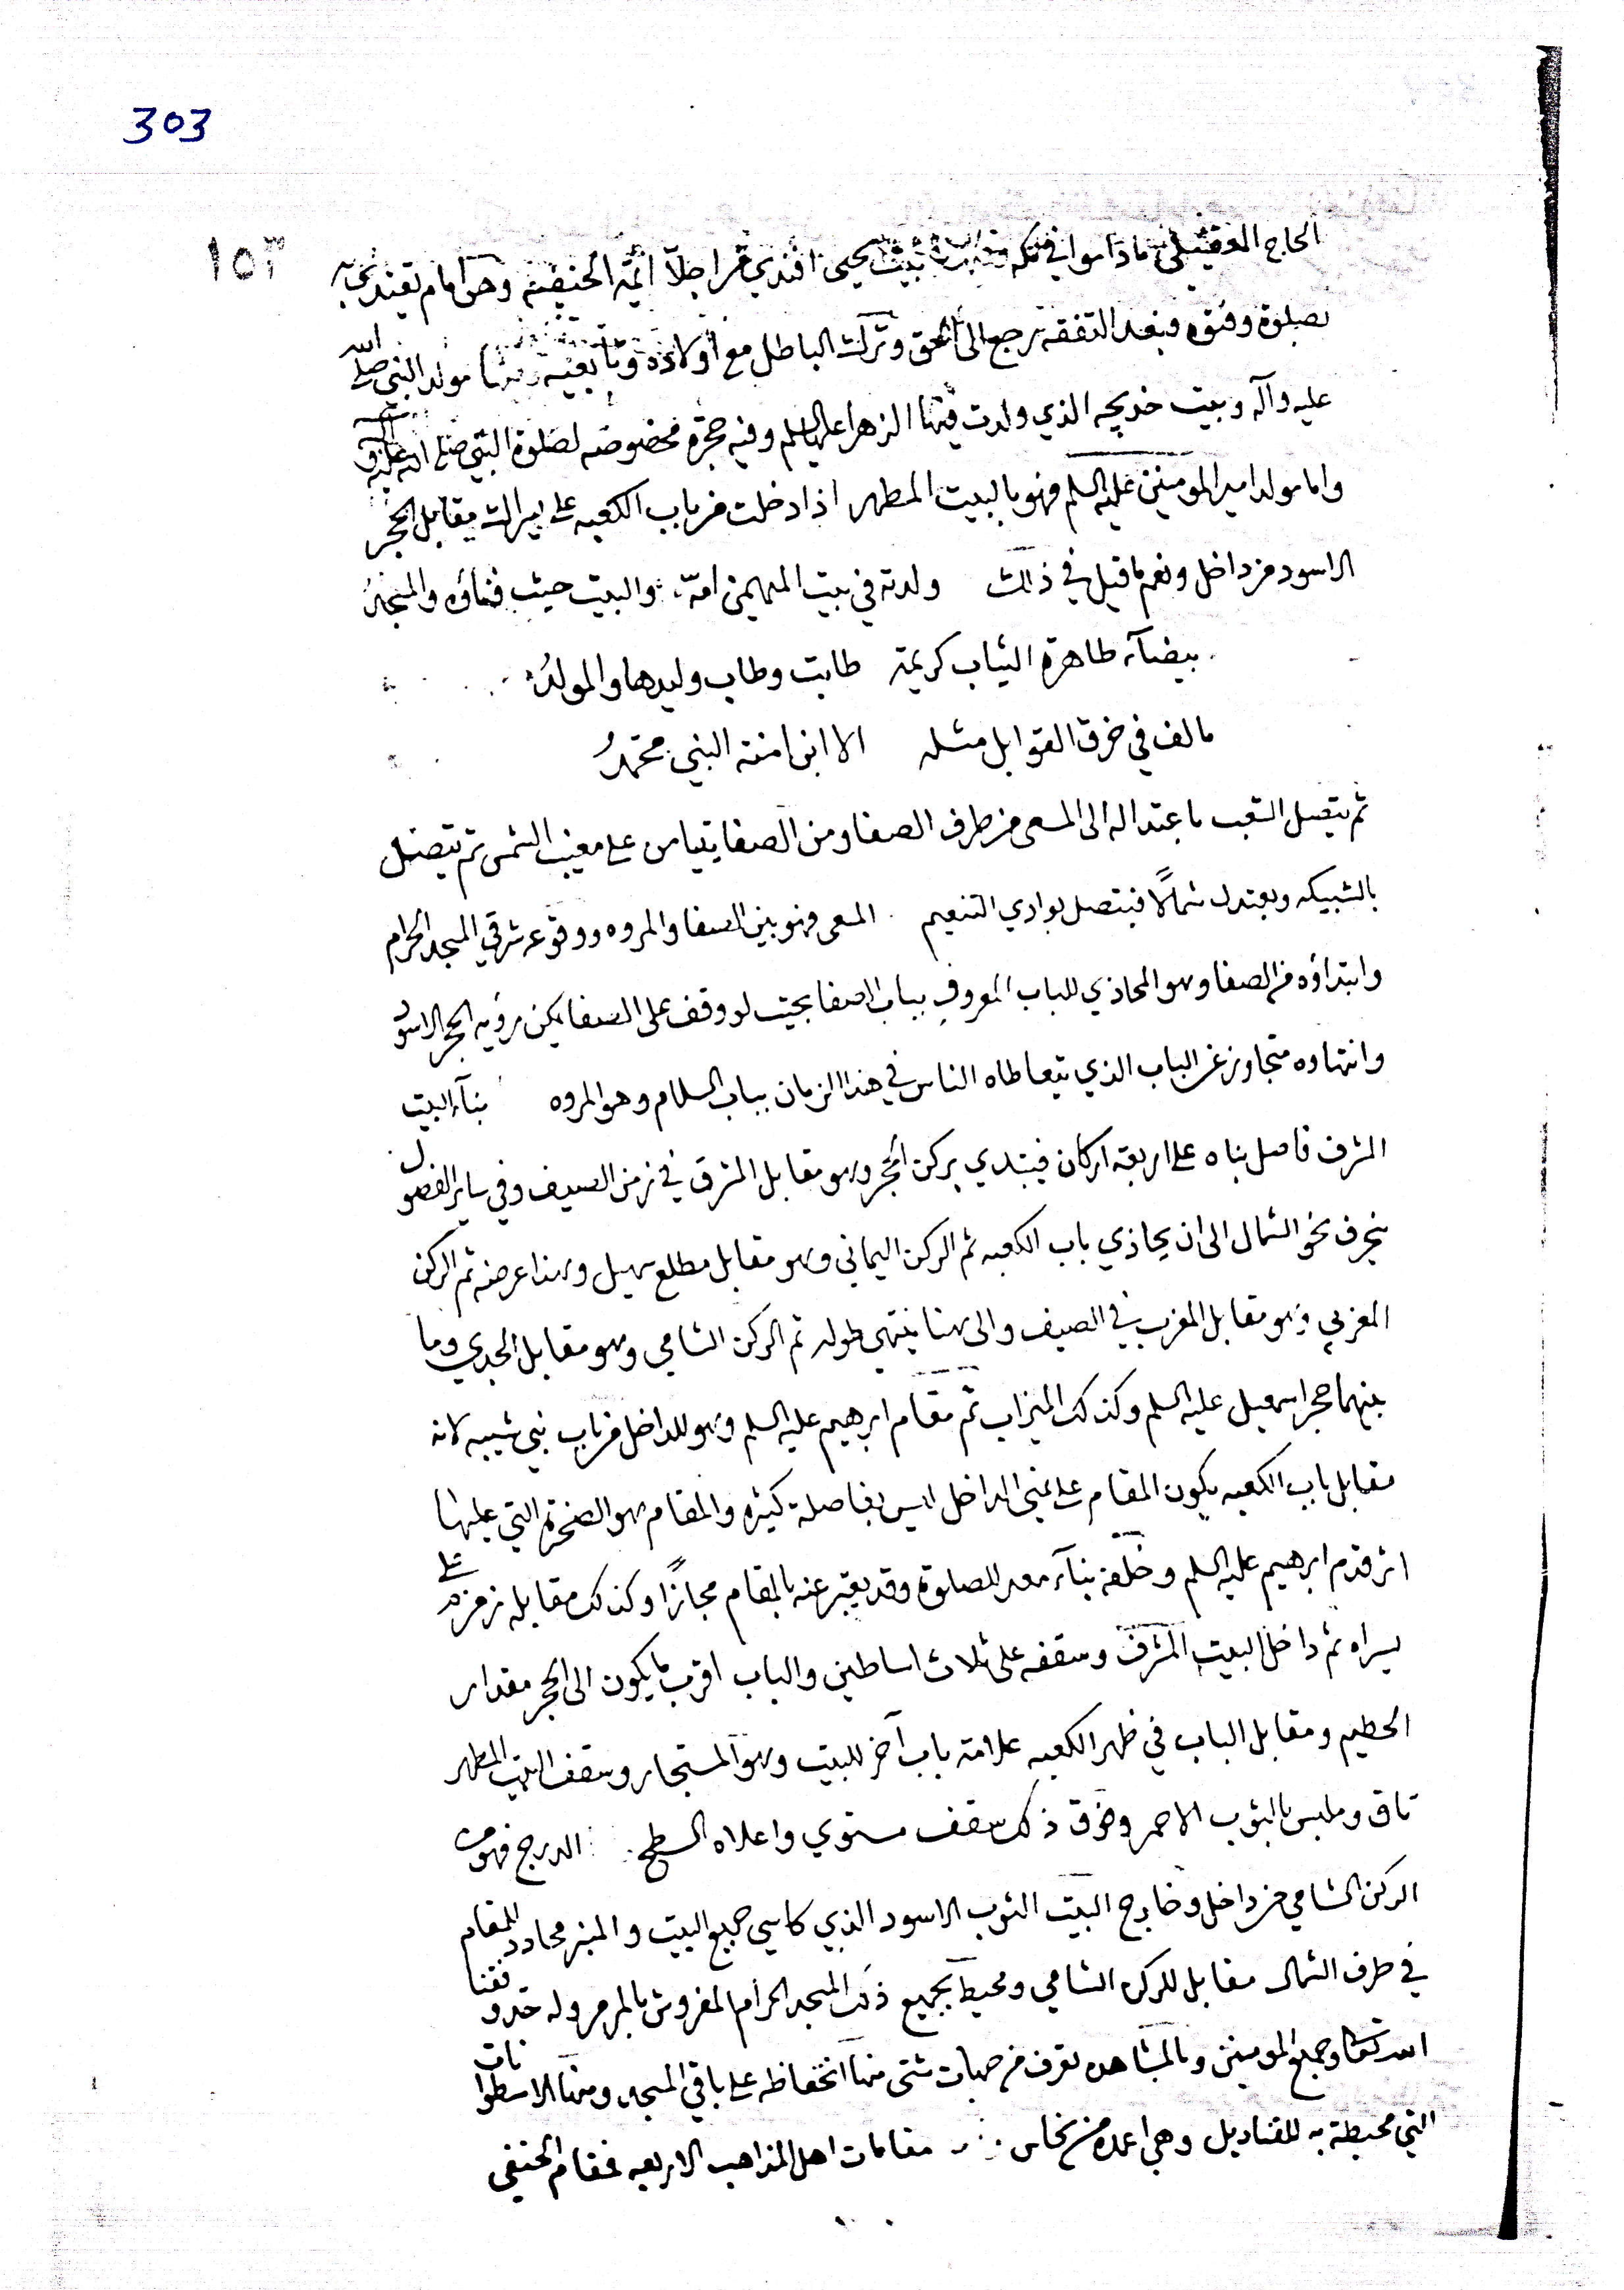 303
١٥٣
الحاج العقيلي ماداموا في مكة بيت يحيى افندي من اجلا ائمه الحنفيه وهو امام تقتدي به
بصلوة وفتوه وبعد التفقه رجع الى الحق وترك الباطل مع اولاده وتابعيه ومنها مولد النبي صلى الله
عليه وآله وبيت خديجه الذي ولدت فيها الزهرا عليها السلم وفيه حجرة مخصوصه لصلوة النبي صلى الله عليه وآله
واما مولد امير المومنين عليه السلم فهو بالبيت المطهر اذا دخلت من باب الكعبه على يسارك مقابل الحجر
الاسود من داخل ونعم ما قيل في ذلك ولدته في بيت المهيمن امّه والبيت حيث فناؤه والمسجدُ
بيضآء طاهرة الثياب كريمة طابت وطاب وليدها والمولدُ
مالف في خرق القوابل مثله الا ابن امنة النبي محمّدُ
ثم يتصل الشعب باعتداله الى المسعى من طرف الصفا ومن الصفا يتياسر على مغيب الشمس ثم يتصل
بالشبيكه ويعتدل شمالًا فيتصل بوادي التنعيم المسعى فهو بين الصفا والمروه ووقوعه شرقي المسجد الحرام
وابتداؤه من الصفا وهو المحاذي للباب المعروف بباب الصفا بحيث لو وقف على الصفا يمكن رؤيه الحجر الاسود
وانتهاوه متجاوز عن الباب الذي يتعاطاه الناس في هذا الزمان بباب السلام وهو المروه بنآء البيت
المشرف فاصل بناه على اربعة اركان فيبتدي بركن الحجر وهو مقابل المشرق في زمن الصيف وفي ساير الفصول
ينحرف نحو الشمال الى ان يحاذي باب الكعبه ثم الركن اليماني وهو مقابل مطلع سهيل وهذا عرضه ثم الركن
المغربي وهو مقابل المغرب في الصيف والى هنا ينتهي طوله ثم الركن الشامي وهو مقابل الجدي وما
بينهما حجر اسمعيل عليه السلم وكذلك الميزاب ثم مقام ابرهيم عليه السلم وهو للداخل من باب بني شيبه لانه
مقابل باب الكعبه يكون المقام على يمنى الداخل ليس بفاصلة كثيره والمقام هو الصخرة التي عليها
اثر قدم ابرهيم عليه السلم وخلفه بنآء معد للصلوة وقد يعبر عنه بالمقام مجازًا وكذلك مقابله زمزم على
يسراه ثم داخل البيت المشرف وسقفه على ثلاث اساطين والباب اقرب ما يكون الى الحجر مقدار
الحطيم ومقابل الباب في ظهر الكعبه علامة باب آخر للبيت وهو المستجار وسقف البيت المطهر
تاق وملبس بالثوب الاحمر وفوق ذلك سقف مستوي واعلاه السطح الدرج فهو من
الركن الشامي من داخل وخارج البيت الثوب الاسود الذي كاسي جميع البيت والمنبر محادد المقام
في طرف الشمال مقابل للركن الشامي ومحيط بجميع ذلك المسجد الحرام المفروش بالمرمر وله حدود وفقنا
الله تعالى وجميع المومنين وبالمشاهده يعرف من جهات شتى منها انخفاظه على باقي المسجد ومنها الاسطوانات
التي محيطة به للقناديل وهي اعمده من نحاس مقامات اهل المذاهب الاربعه فمقام الحنفي